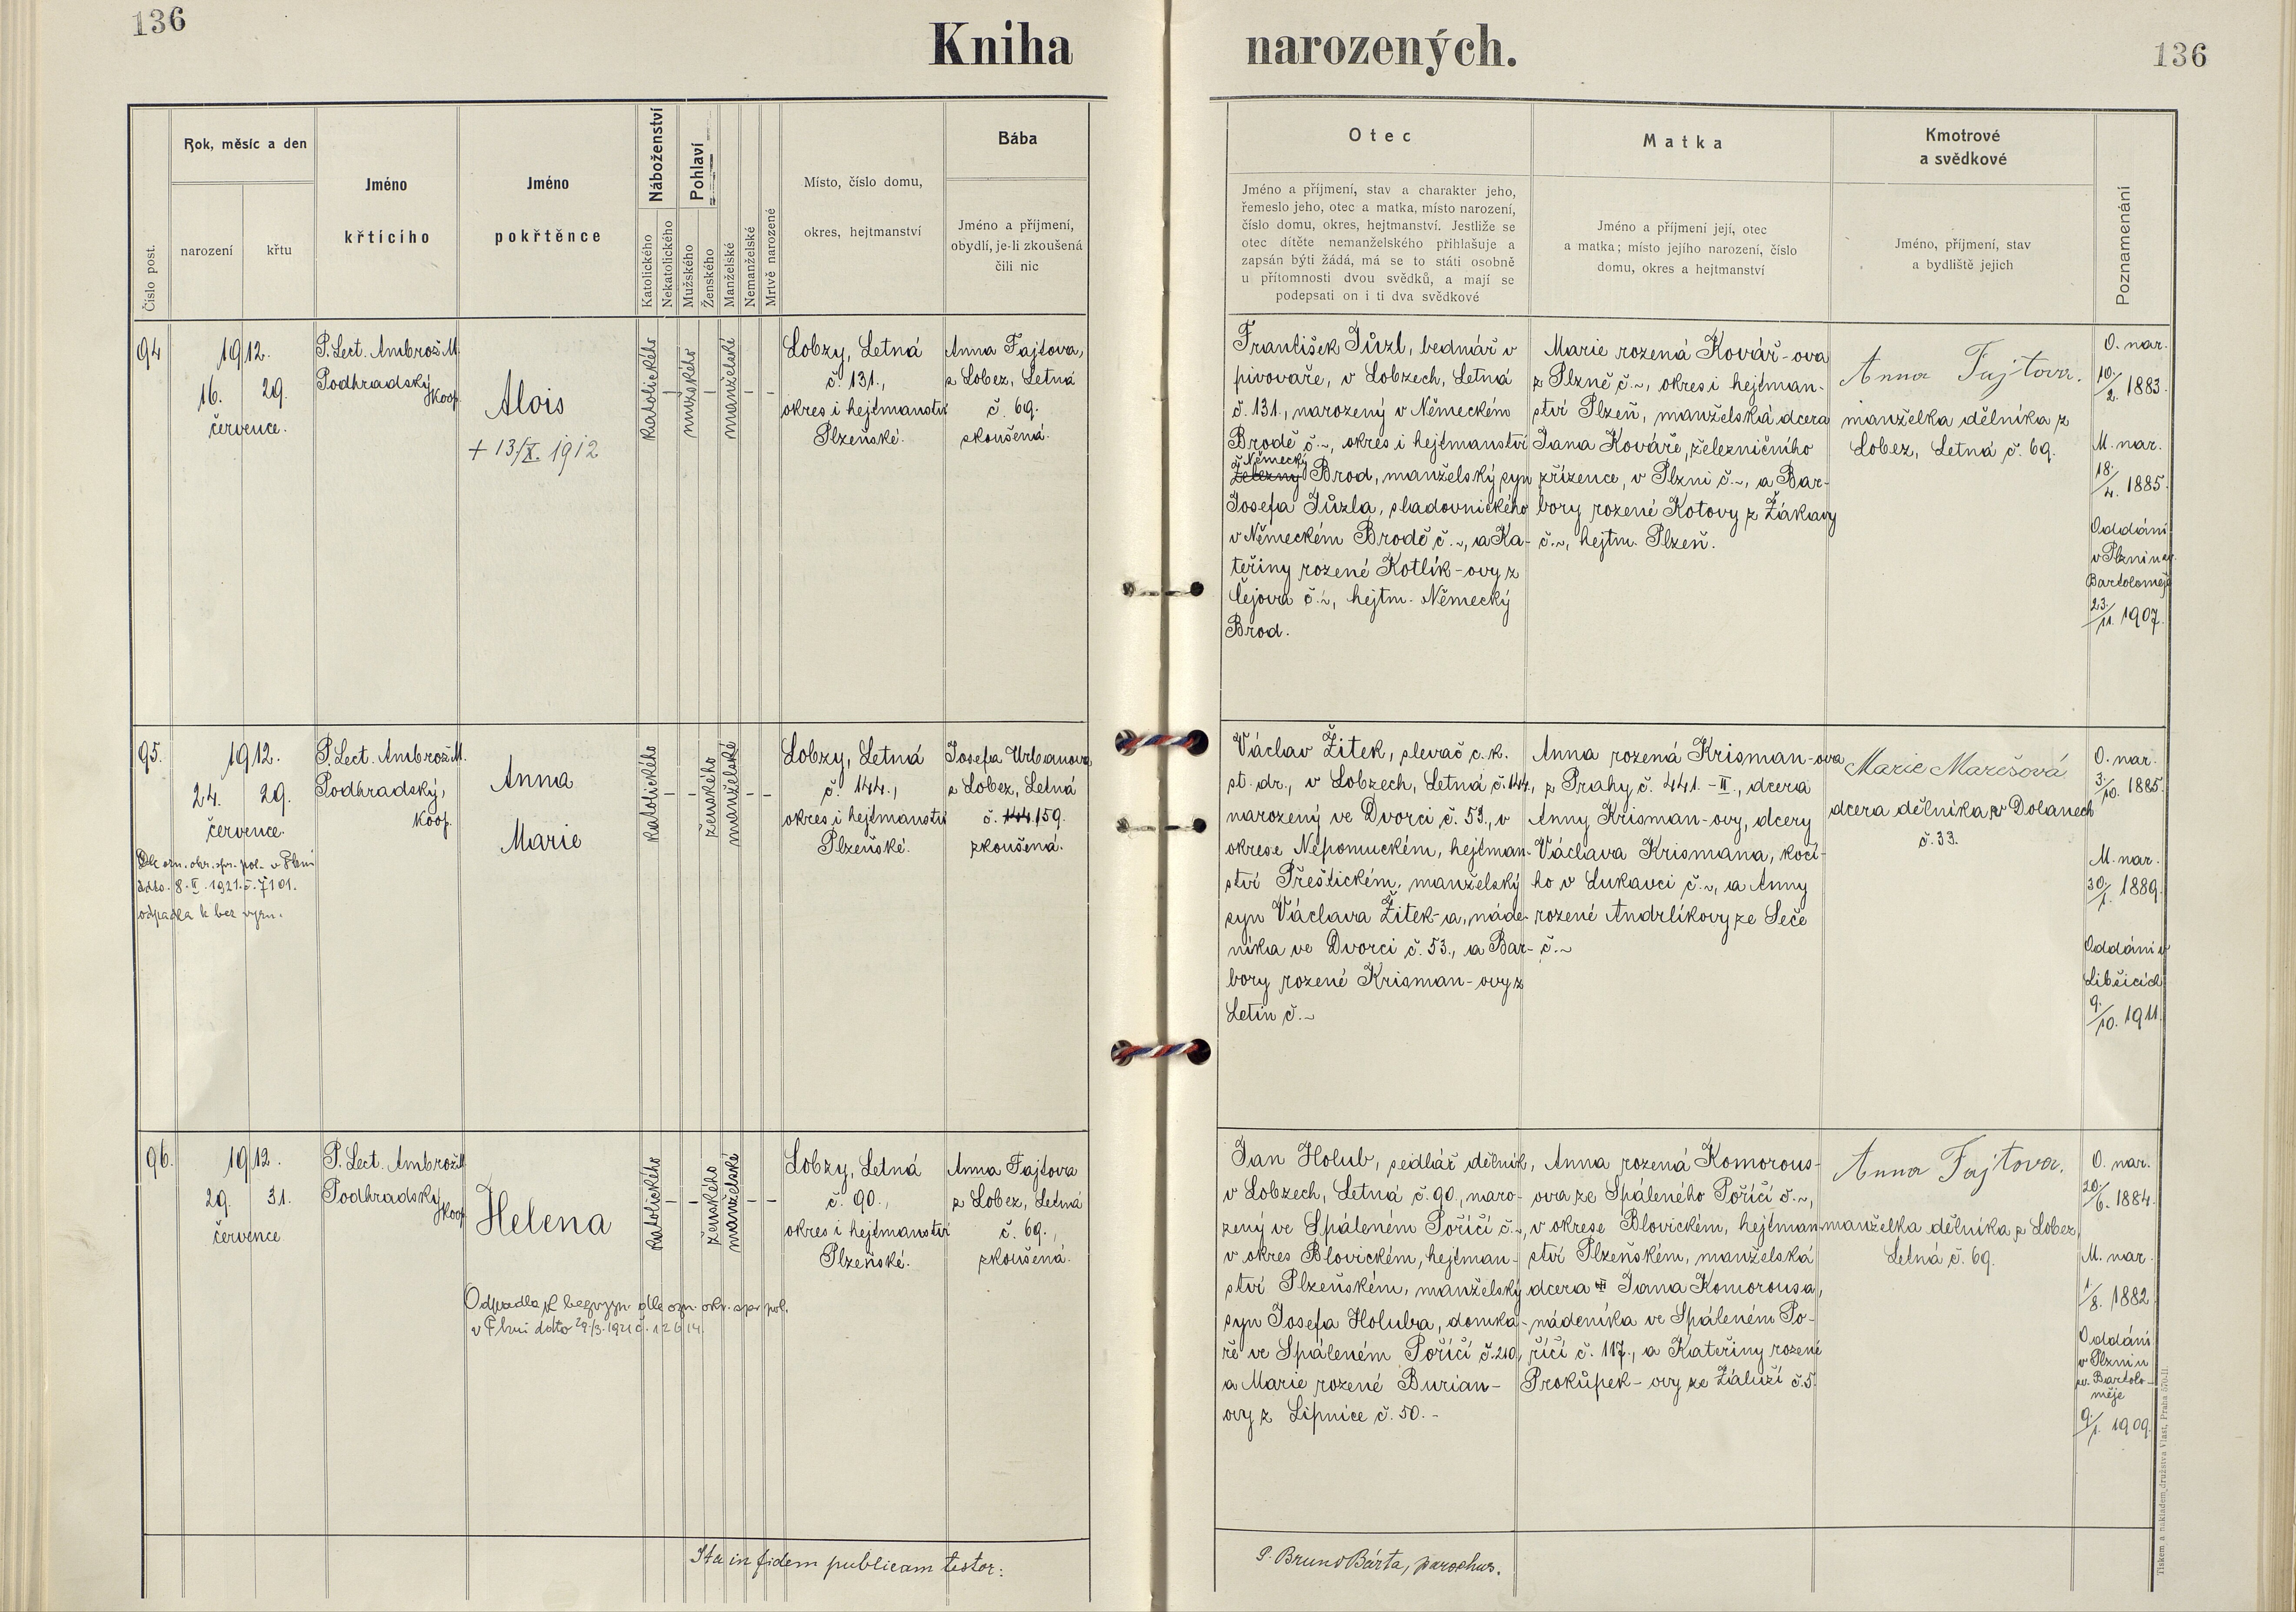 136
Kniha narozených.
136
Číslo post.
Rok, měsíc a den
narození
křtu
Jméno
křtícího
Jméno
pokřtěnce
Náboženství
Katolického
Nekatolického
Pohlaví
Mužského
Ženského
Manželské
Nemanželské
Mrtvě narozené
Místo, číslo domu,
okres, hejtmanství
Bába
Jméno a příjmení,
obydlí, je-li zkoušená
čili nic
Otec
Jméno a příjmení, stav a charakter jeho,
řemeslo jeho, otec a matka, místo narození,
číslo domu, okres, hejtmanství. Jestliže se
otec dítěte nemanželského přihlašuje a
zapsán býti žádá, má se to státi osobně
u přítomnosti dvou svědků, a mají se
podepsati on i ti dva svědkové
Matka
Jméno a příjmení její, otec
a matka; místo jejího narození, číslo
domu, okres a hejtmanství
Kmotrové
a svědkové
Jméno, příjmení, stav
a bydliště jejich
Poznamenání
94
1912.
16. 29.
července.
P. Lect. Ambrož M.
Podhradský
koop.
Alois
+ 13/X. 1912
katolického
–
mužského
–
manželské
–
–
Lobzy, Letná
č. 131.,
okres i hejtmanství
Plzeňské.
Anna Fajtova,
z Lobez, Letná
č. 69.
zkoušená.
František Jůzl, bednář v
pivovaře, v Lobzech, Letná
č. 131., narozený v Německém
Brodě č.~, okres i hejtmanství
Německý
Železný Brod, manželský syn
Josefa Jůzla, sladovnického
v Německém Brodě č.~, a Ka-
teřiny rozené Kotlík-ovy z
Čejova č.~, hejtm. Německý
Brod.
Marie rozená Kovář-ova
z Plzně č.~, okres i hejtman-
ství Plzeň, manželská dcera
Jana Kováře, železničního
zřízence, v Plzni č.~, a Bar-
bory rozené Kotovy z Žákavy
č.~, hejtm. Plzeň.
Anna Fajtova.
manželka dělníka z
Lobez, Letná č. 69.
O. nar.
10./2. 1883.
M. nar.
18./4. 1885.
Oddáni
v Plzni u sv.
Bartoloměje
23./11. 1907.
95.
1912.
24. 29.
července.
Dle ozn. okr. spr. pol. v Plzni
ddto. 8.II.1921.č.7101.
odpadla k bez vyzn.
P. Lect. Ambrož M.
Podhradský,
koop.
Anna
Marie
katolického
–
–
ženského
manželské
–
–
Lobzy, Letná
č. 144.,
okres i hejtmanství
Plzeňské.
Josefa Urbanova
z Lobez, Letná
č. 144 159.
zkoušená.
Václav Žitek, slevač c. k.
st. dr., v Lobzech, Letná č. 144,
narozený ve Dvorci č. 53., v
okrese Nepomuckém, hejtman-
ství Přeštickém, manželský
syn Václava Žitek-a, náde-
níka ve Dvorci č. 53., a Bar-
bory rozené Krisman-ovy z
Letin č.~
Anna rozená Krisman-ova
z Prahy č. 441.-II., dcera
Anny Krisman-ovy, dcery
Václava Krismana, kočí-
ho v Lukavci č.~, a Anny
rozené Andrlíkovy ze Seče
č.~
Marie Marešová
dcera dělníka v Dolanech
č. 33.
O. nar.
3./10. 1885.
M. nar.
30./1. 1889.
Oddáni v
Libčicích
9./10. 1911.
96.
1912.
29. 31.
července
P. Lect. Ambrož M
Podhradský
koop.
Helena
katolického
–
–
ženského
manželské
–
–
Odpadla k bezvyzn. dle ozn. okr. spr. pol.
v Plzni ddto 29./3. 1921 č. 12614.
Lobzy, Letná
č. 90.,
okres i hejtmanství
Plzeňské.
Anna Fajtova
z Lobez, Letná
č. 69.,
zkoušená.
Jan Holub, sedlář dělník,
v Lobzech, Letná č. 90., naro-
zený ve Spáleném Poříčí č.~,
v okres Blovickém, hejtman-
ství Plzeňském, manželský
syn Josefa Holuba, domka-
ře ve Spáleném Poříčí č. 210,
a Marie rozené Burian-
ovy z Lipnice č. 50.-
Anna rozená Komorous-
ova ze Spáleného Poříčí č.~,
v okrese Blovickém, hejtman-
ství Plzeňském, manželská
dcera Jana Komorousa,
nádeníka ve Spáleném Po-
říčí č. 117., a Kateřiny rozené
Prokůpek-ovy ze Záluží č. 5.
Anna Fajtova.
manželka dělníka z Lobez,
Letná č. 69.
O. nar.
20./6. 1884.
M. nar.
1/8. 1882
Oddáni
v Plzni u
sv. Bartolo-
měje
9./1. 1909.
Ita in fidem publicam testor:
P. Bruno Bárta, parochus.
Tiskem a nákladem družstva Vlast, Praha 570-II.